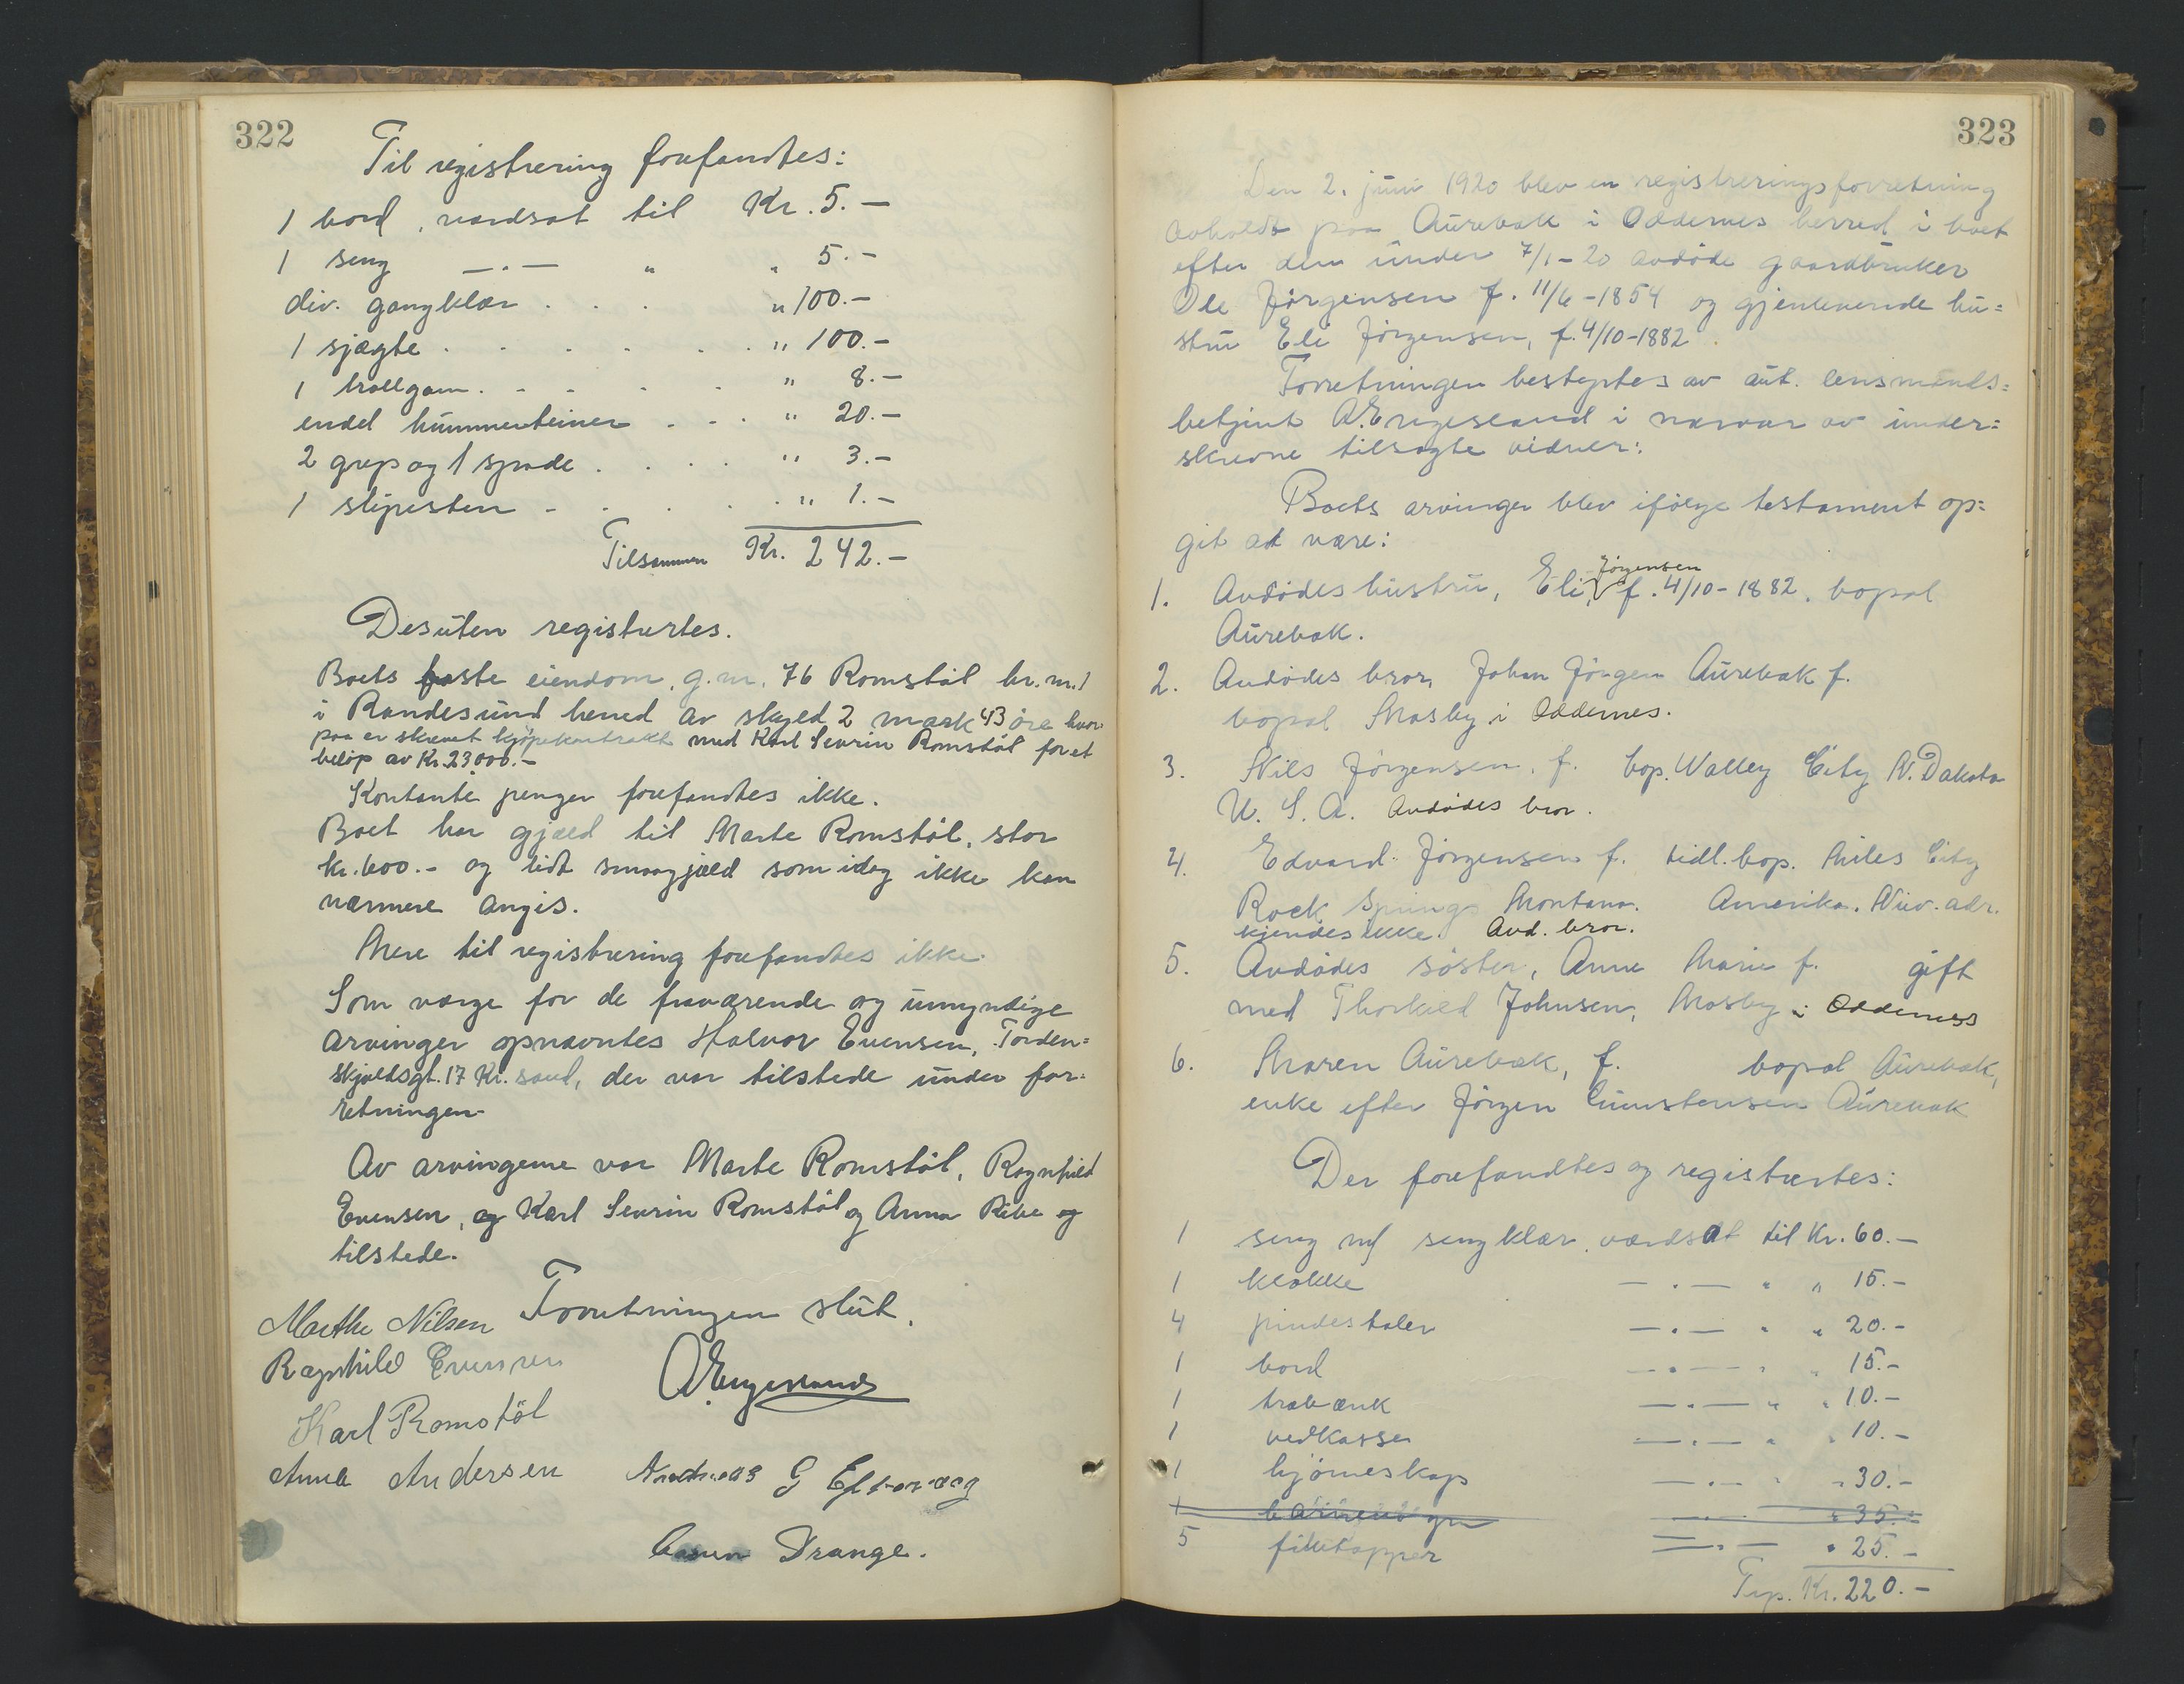 322
Til registrering forefandtes:
1 bord, værdsat til Kr. 5.-
1 seng —.— " " 5.-
div. gangklær . . . " 100.-
1 sjægte . . . . . . " 100.-
1 trollgarn . . . . . " 8.-
endel hummerteiner . . . " 20.-
2 grep og 1 spade . . . . " 3.-
1 slipesten - . . . . " 1.-
Tilsammen Kr. 242.-
Desuten registrertes.
Boets faste eiendom, g.nr. 76 Romstöl br.nr. 1
i Randesund herred av skyld 2 mark 43 øre hvor
paa er skrevet kjøpekontrakt med Karl Severin Romstöl for et
beløp av Kr. 23000.-
Kontante penger forefandtes ikke.
Boet har gjæld til Marte Romstöl, stor
kr. 600.- og lidt smaagjæld som idag ikke kan
nærmere angis.
Mere til registrering forefandtes ikke.
Som verge for de fraværende og umyndige
arvinger opnævntes Halvor Evensen, Torden=
skjoldsgt. 17 Kr.sand, der var tilstede under for=
retningen.
Av arvingerne var Marte Romstöl, Ragnhild
Evensen, og Karl Severin Romstöl og Anna Ribe og
tilstede.
Forretningen slut.
Marthe Nilsen
Ragnhild Evensen
A. Engesland
Karl Romstöl
Anna Andersen
Andreas G
Drange.
323
Den 2. juni 1920 blev en registreringsforretning
avholdt paa Aurebak i Oddernes herred i boet
efter den under 7/1-20 avdøde gaardbruker
Ole Jørgensen f. 11/6-1854 og gjenlevende hu=
stru Eli Jørgensen, f. 4/10-1882.
Forretningen bestyrtes av aut. lensmands=
betjent A. Engesland i nærvær av under=
skrevne tilsagte vidner:
Boets arvinger blev ifølge testament op=
git at være:
1. Avdødes hustru, Eli Jørgensen, f. 4/10-1882, bopæl
Aurebak.
2. Avdødes bror, Johan Jørgen Aurebak f.
bopæl Mosby i Oddernes.
3. Nils Jørgensen, f. bop. Walley City N. Dakota
U. S. A. Avdødes bror.
4. Edvard Jørgensen f. tidl. bop. Miles City
Rock Springs Montana. Amerika. Nuv. adr.
kjendes ikke. Avd. bror.
5. Avdødes søster, Anne Marie f. gift
med Thorkild Johnsen, Mosby i Oddernes
6. Maren Aurebæk, f. bopæl Aurebak,
enke efter Jørgen Aurebak
Der forefandtes og registrertes:
1 seng m/ sengklær værdsat til Kr. 60.-
1 klokke —.— " " 15.-
4 pindestoler —.— " " 20.-
1 bord —.— " " 15.-
1 træbænk —.— " " 10.-
1 vedkasse —.— " " 10.-
1 hjørneskap —.— " " 30.-
1 barnevogn —.— " 35.-
5 filletepper —.— " 25.-
Trp. Kr. 220.-